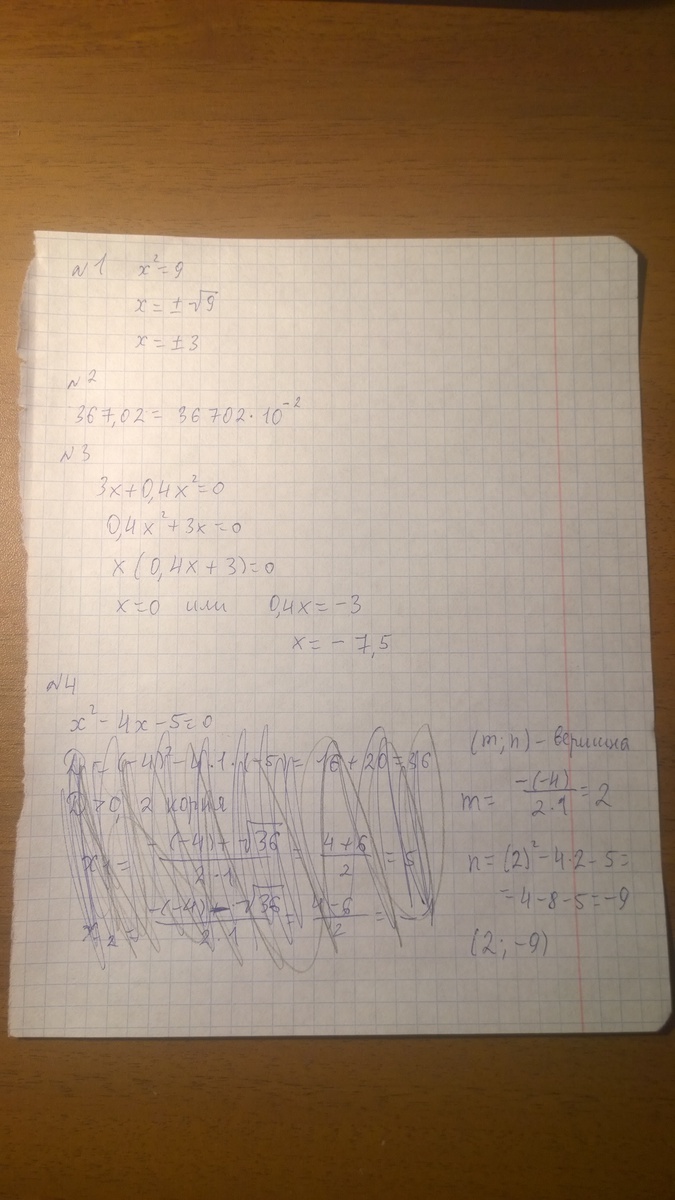 №1 x² = 9
x = ± √9
x = ± 3
№2
367,02 = 36702 · 10⁻²
№3
3x + 0,4x² = 0
0,4x² + 3x = 0
x (0,4x + 3) = 0
x = 0 или 0,4x = -3
x = - 7,5
№4
x² - 4x - 5 = 0
D = (-4)² - 4 · 1 · (-5) = 16 + 20 = 36
D > 0, 2 корня
x₁ = (-(-4) + √36)/(2 · 1) = (4 + 6)/2 = 5
x₂ = (-(-4) - √36)/(2 · 1) = (4 - 6)/2 =
(m; n) - вершина
m = (-(-4))/(2 · 1) = 2
n = (2)² - 4 · 2 - 5 =
= 4 - 8 - 5 = -9
(2; -9)